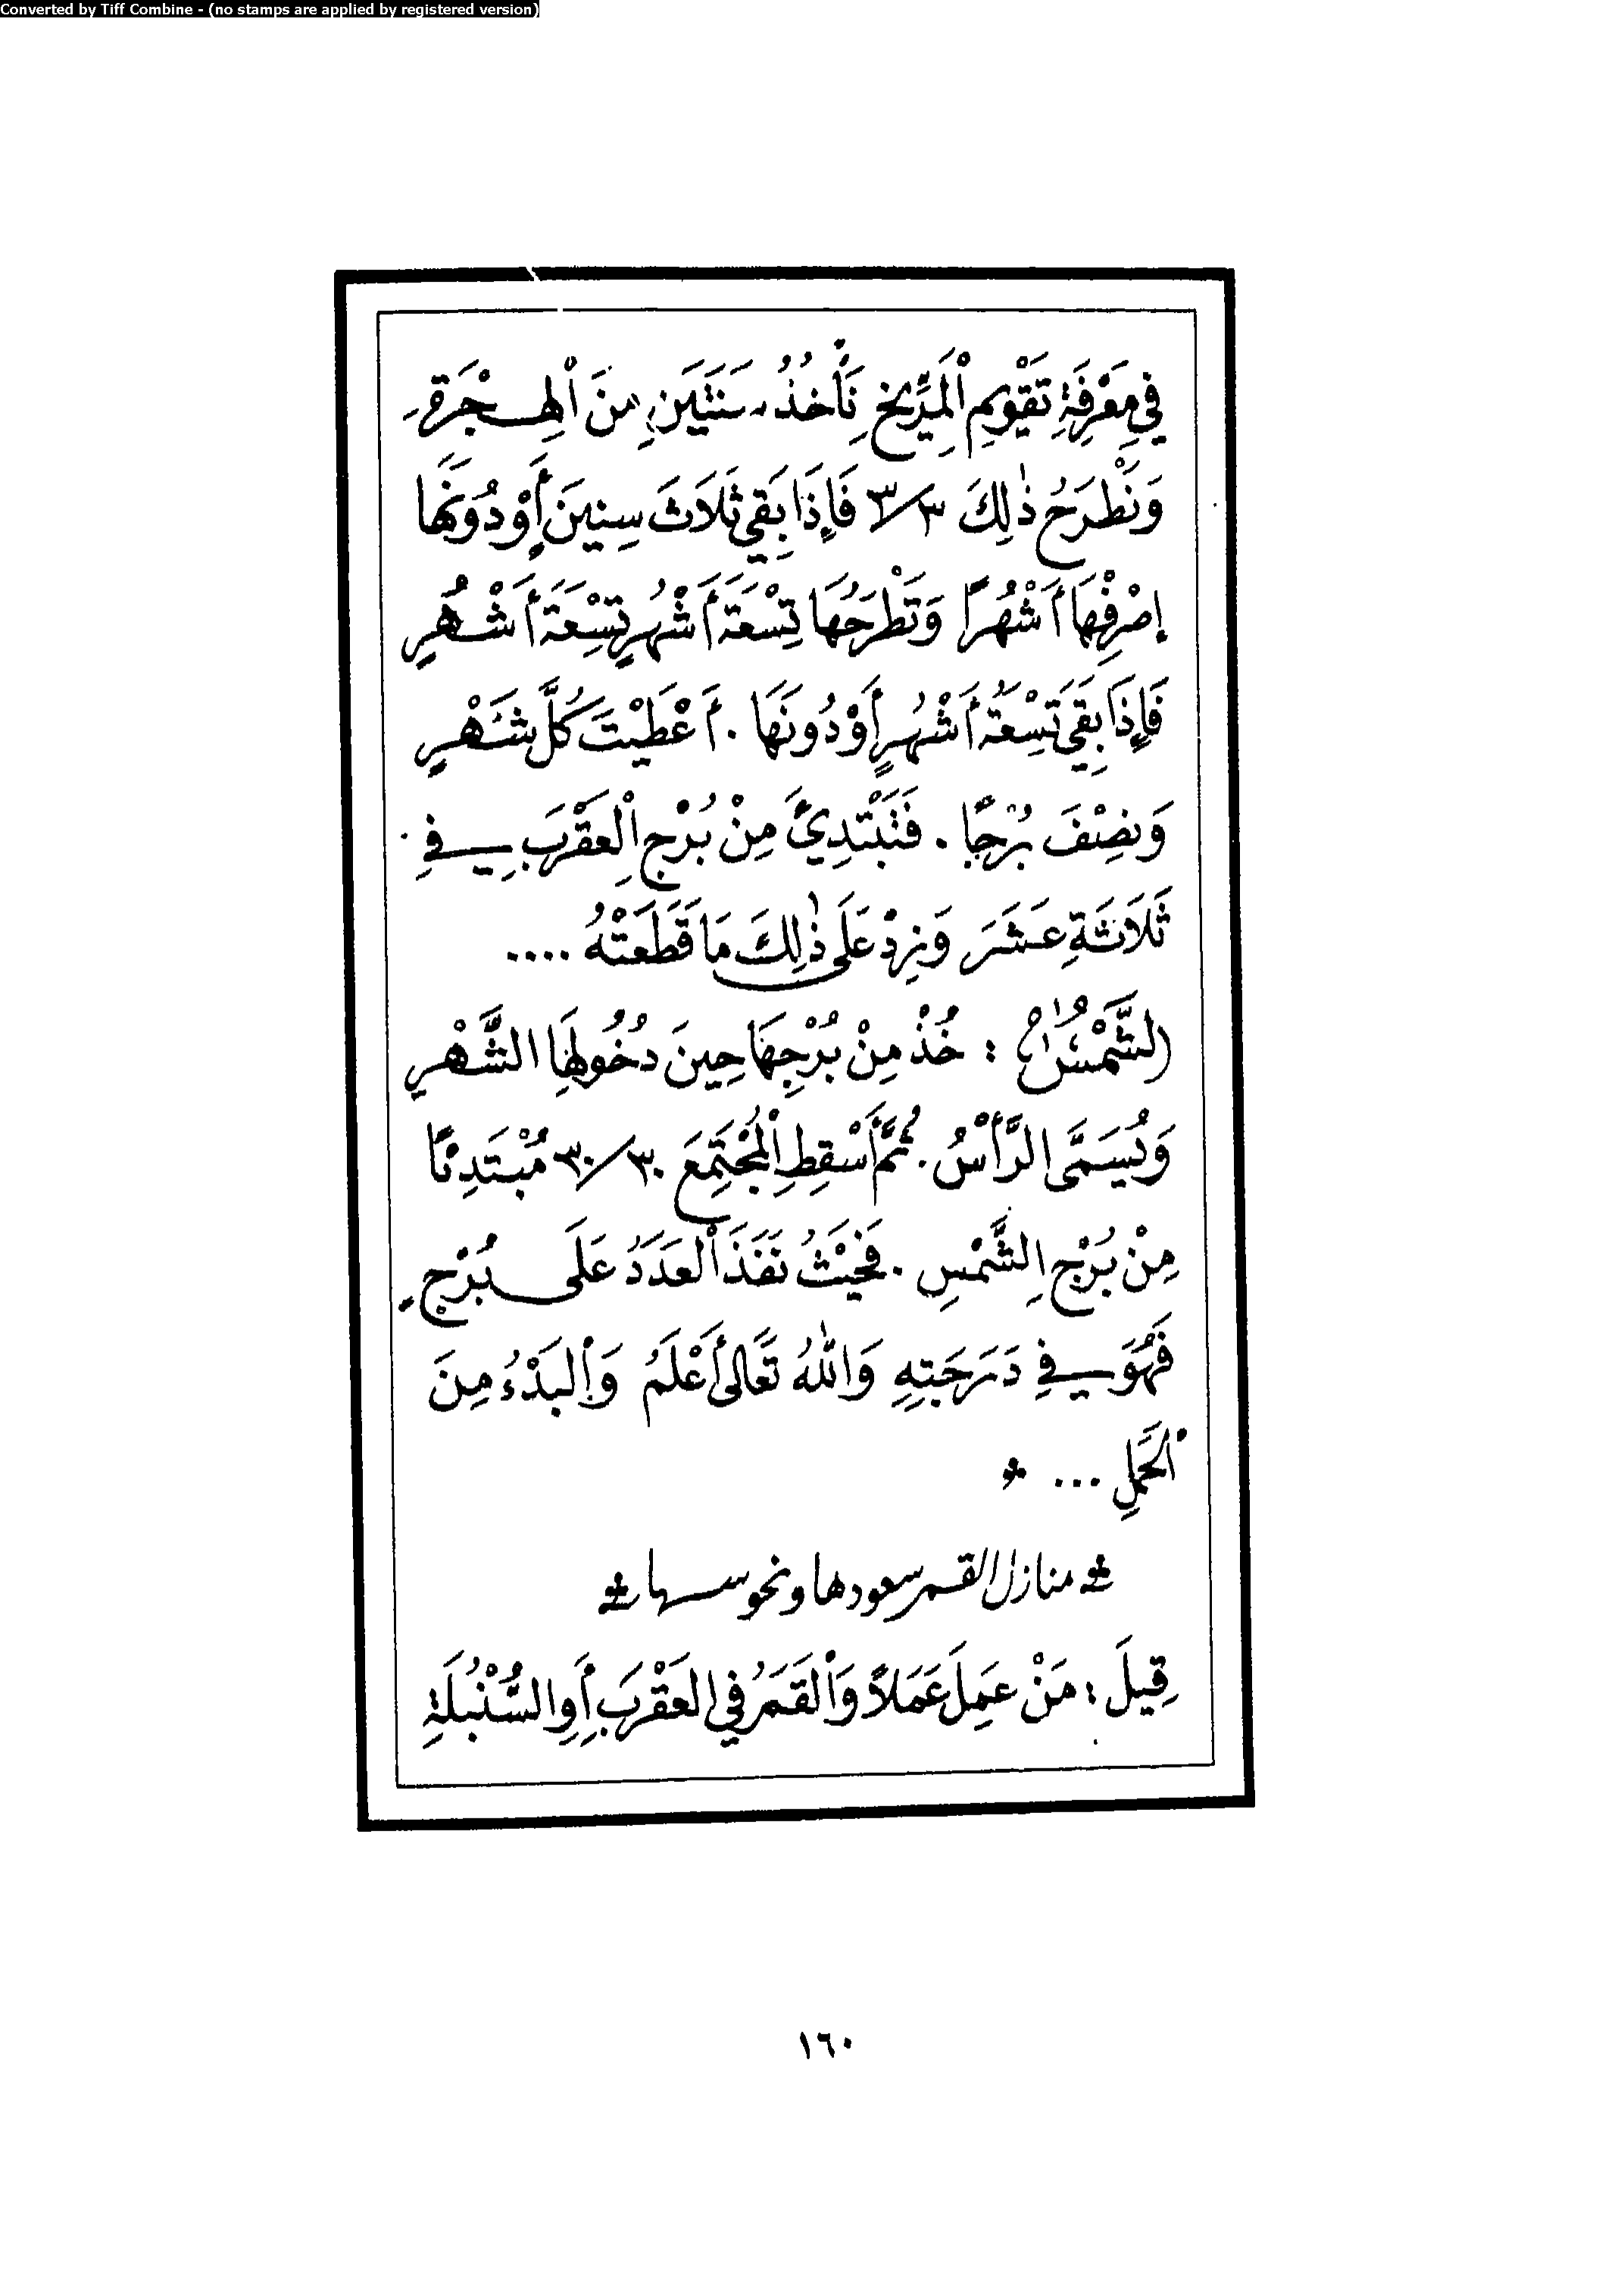 Converted by Tiff Combine - (no stamps are applied by registered version)
فِي مَعْرِفَةِ تَقْوِيمِ الْمِرِّيخِ نَأْخُذُ سَنَتَيْنِ مِنَ الْهِجْرَةِ
وَنَطْرَحُ ذٰلِكَ ٣/٣ فَإِذَا بَقِيَ ثَلَاثَ سِنِينَ أَوْ دُونَهَا
إِصْرِفْهَا أَشْهُرًا وَتَطْرَحُهَا تِسْعَةَ أَشْهُرٍ تِسْعَةَ أَشْهُرٍ
فَإِذَا بَقِيَ تِسْعَةُ أَشْهُرٍ أَوْ دُونَهَا . أَعْطَيْتَ كُلَّ شَهْرٍ
وَنِصْفَ بُرْجًا . فَتَبْتَدِئُ مِنْ بُرْجِ الْعَقْرَبِ فِي
ثَلَاثَةِ عَشَرَ وَنَزِدْ عَلَى ذٰلِكَ مَا قَطَعَتْهُ ....
الشَّمْسُ : خُذْ مِنْ بُرْجِهَا حِينَ دُخُولِهَا الشَّهْرِ
وَيُسَمَّى الرَّأْسُ . ثُمَّ أَسْقِطِ الْمُجْتَمِعَ ٣٠/٣٠ مُبْتَدِئًا
مِنْ بُرْجِ الشَّمْسِ . فَحَيْثُ نَفَذَ الْعَدَدُ عَلَى بُرْجٍ
فَهُوَ فِي دَرَجَتِهِ وَاللهُ تَعَالَى أَعْلَمُ وَالْبَدْءُ مِنَ
الْحَمَلِ ...
منازل القمر سعودها ونحوسها
قِيلَ : مَنْ عَمِلَ عَمَلًا وَالْقَمَرُ فِي الْعَقْرَبِ أَوِ السُّنْبُلَةِ
١٦٠